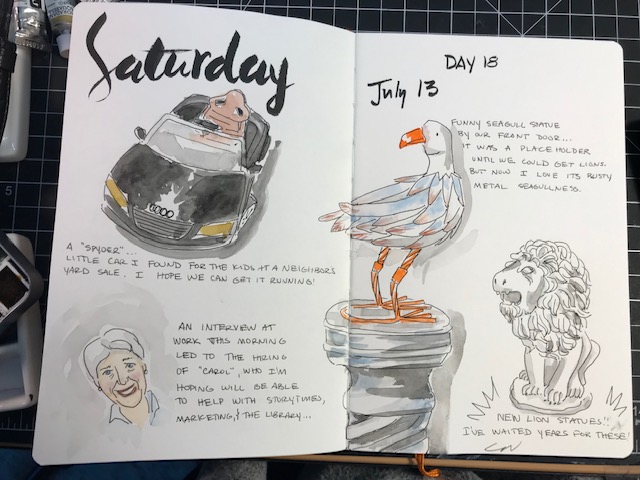 Saturday
A "SPYDER"...
LITTLE CAR I FOUND FOR THE KIDS AT A NEIGHBORS
YARD SALE. I HOPE WE CAN GET IT RUNNING!
AN INTERVIEW AT
WORK THIS MORNING
LED TO THE HIRING
OF "CAROL", WHO I'M
HOPING WILL BE ABLE
TO HELP WITH STORYTIMES,
MARKETING, & THE LIBRARY...
DAY 18
July 13
FUNNY SEAGULL STATUE
BY OUR FRONT DOOR...
IT WAS A PLACEHOLDER
UNTIL WE COULD GET LIONS.
BUT NOW I LOVE ITS RUSTY
METAL SEAGULLNESS.
NEW LION STATUES!!
I'VE WAITED YEARS FOR THESE!